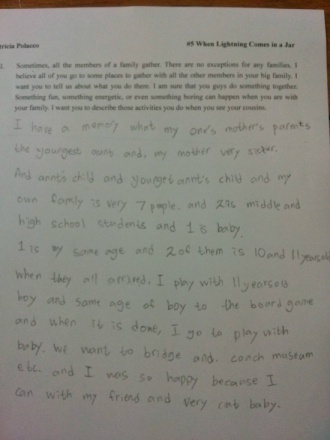 tricia Polacco #5 When Lightning Comes in a Jar
1. Sometimes, all the members of a family gather. There are no exceptions for any families. I
believe all of you go to some places to gather with all the other members in your big family. I
want you to tell us about what you do there. I am sure that you guys do something together.
Something fun, something energetic, or even something boring can happen when you are with
your family. I want you to describe those activities you do when you see your cousins.
I have a memory what my one's mother's parents
the youngest aunt and, my mother very sister.
And annt's child and younget annt's child and my
own family is very 7 people. and 2 is middle and
high school students and 1 is baby.
1 is my same age and 2 of them is 10 and 11 years old
when they all arrived. I play with 11 years old
boy and same age of boy to the board game
and when it is done, I go to play with
baby. We want to bridge and. conch museam
etc. and I was so happy because I
can with my friend and very cut baby.